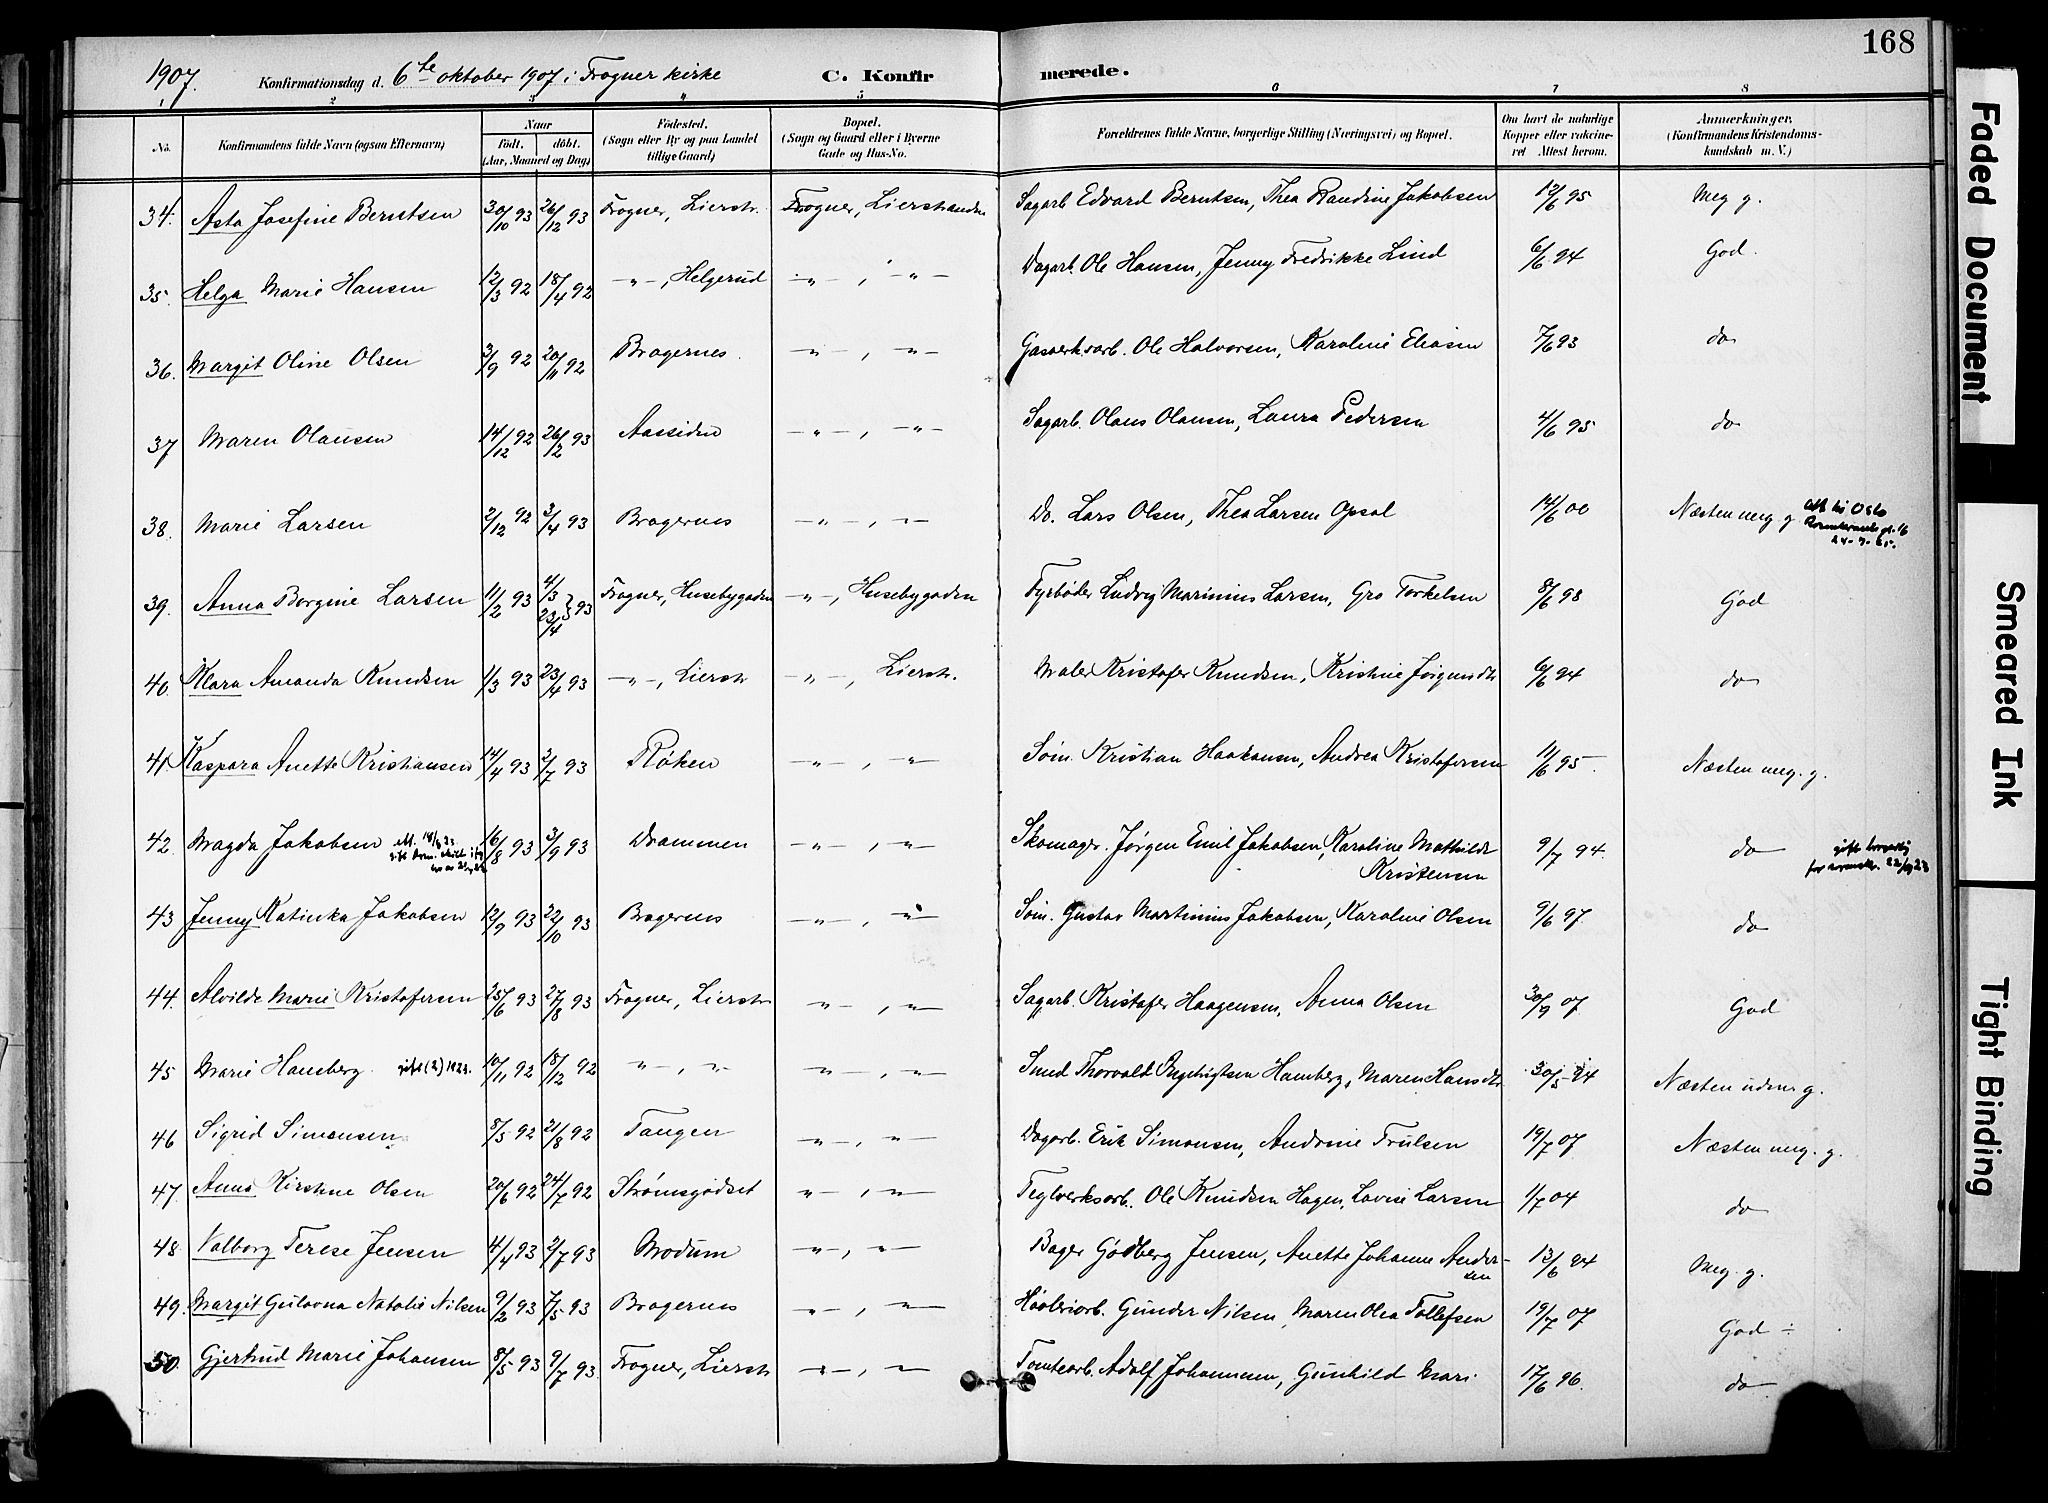 168
1907. Konfirmationsdag d. 6te oktober 1907 i Frogner kirke C. Konfirmerede.
1 2 3 4 5 6 7 8
No. Konfirmandens fulde Navn (ogsaa Efternavn) Naar født. døbt. (Aar, Maaned og Dag) Fødested. (Sogn eller By og paa Landet tillige Gaard) Bopæl. (Sogn og Gaard eller i Byerne Gade og Hus-No. Forældrenes fulde Navne, borgerlige Stilling (Næringsvei) og Bopæl. Om havt de naturlige Kopper eller vaccineret Attest herom. Anmærkninger. (Konfirmandens Kristendomskundskab m. V.)
34. Asta Josefine Berntsen 30/10 93 26/12 93 Frogner, Lierstr. Frogner, Lierstranden Sagarb. Edvard Berntsen, Thea Randine Jakobsen 12/6 95 Meg g.
35. Helga Marie Hansen 12/3 92 18/4 92 —„—, Helgerud —„—, „— Dagarb. Ole Hansen, Jenny Fredrikke Lind 6/6 94 God.
36. Margit Oline Olsen 3/9 92 20/11 92 Bragernes. —„—, —„— Gasverksarb. Ole Halvorsen, Karoline Eliasen 7/6 93 do
37 Maren Olausen 14/12 92 26/2 93 Aassiden —„—, —„— Sagarb. Olaus Olausen, Laura Pedersen 4/6 95 do
38. Marie Larsen 2/12 92 3/4 93 Bragernes —„—, „— Do. Lars Olsen, Thea Larsen Opsal 14/6 00 Næsten meg. g. att til Oslo
39. Anna Borgine Larsen 11/2 93 4/3 23/4 } 93 Frogner, Husebygaden —„—, Husebygaden Fyrbøder Ludvig Marinius Larsen, Gro Torkelsen 8/6 98 God
40. Klara Amanda Knudsen 1/3 93 23/4 93 —„—, Lierstr —„—, Lierstr. Maler Kristofer Knudsen, Kristine Jørgensdtr 6/6 94 do
41 Kaspara Anette Kristiansen 14/4 93 2/7 93 Røken —„—, „— Søm. Kristian Haakonsen, Andrea Kristofersen 11/6 95 Næsten meg. g.
42. Magda Jakobsen 16/8 93 3/9 93 Drammen —„—, „— Skomager. Jørgen Emil Jakobsen, Karoline Mathilde Kristensen 9/7 94. do
43 Jenny Katinka Jakobsen 12/9 93 22/10 93 Bragernes —„—, „— Søm. Gustav Martinius Jakobsen, Karoline Olsen 9/6 97 do
44. Alvilde Marie Kristofersen 25/6 93 27/8 93 Frogner, Lierstr „—, „— Sagarb. Kristofer Haagensen, Anna Olsen 30/9 07 God
45 Marie Hamberg. gift (2) 1923. 10/11 92 18/12 92 „—, „— „—, „— Smed Thorvald Ingebrigtsen Hamberg, Maren Hansdtr 30/5 94 Næsten udm. g.
46 Sigrid Simonsen 8/5 92 21/8 92 Tangen „—, „— Dagarb. Erik Simonsen, Andrine Trulsen 19/7 07 Næsten meg. g.
47. Anna Kirstine Olsen 20/6 92 24/7 92 Strømsgodset „—, „— Teglverksarb. Ole Knudsen Hagen, Lovise Larsen 1/7 04 do
48. Valborg Terese Jensen 4/4 93 2/7 93 Modum „—, „— Bager Godberg Jensen, Anette Johanne Andersen 13/6 94 Meg. g.
49. Margit Gulovna Natalie Nilsen 9/2 93 7/5 93 Bragernes „—, „— Høvleriarb. Gunder Nilsen, Maren Olea Tollefsen 19/7 07 God ÷
50. Gjertrud Marie Johansen 8/5 93 9/7 93 Frogner, Lierstr „—, „— Tomtearb. Adolf Johannesen, Gunhild Mari 17/6 96. do
Faded Document
Smeared Ink
Tight Binding